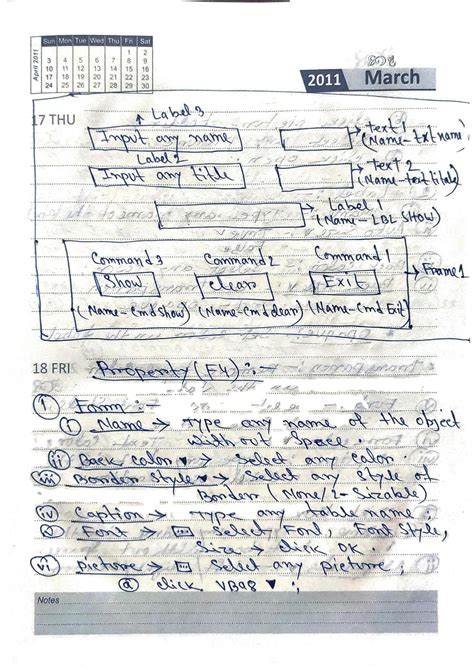 April 2011
Sun Mon Tue Wed Thu Fri Sat
1 2
3 4 5 6 7 8 9
10 11 12 13 14 15 16
17 18 19 20 21 22 23
24 25 26 27 28 29 30
2011 March
17 THU
Label 3
Input any name
Text 1
(Name-txt name)
Label 2
Input any title
Text 2
(Name-text title)
Label 1
(Name-LBL SHOW)
Command3 Command2 Command1
Show clear Exit
Frame1
(Name-Cmdshow) (Name-Cmdclear) (Name-Cmd Exit)
18 FRI Property (F4) :-
① Form :-
ⓘ Name → Type any name of the object
with out space.
ⓘⓘ Back calor ▼ → Select any calor.
iii Border style ▼ → Select any style of
Border (None/2-Sizable)
iv Caption → Type any table name ;
v Font → ... Select Font, Font Style,
Size → click OK.
vi picture → ... Select any picture ;
ⓐ click VB98 ▼ ;
Notes